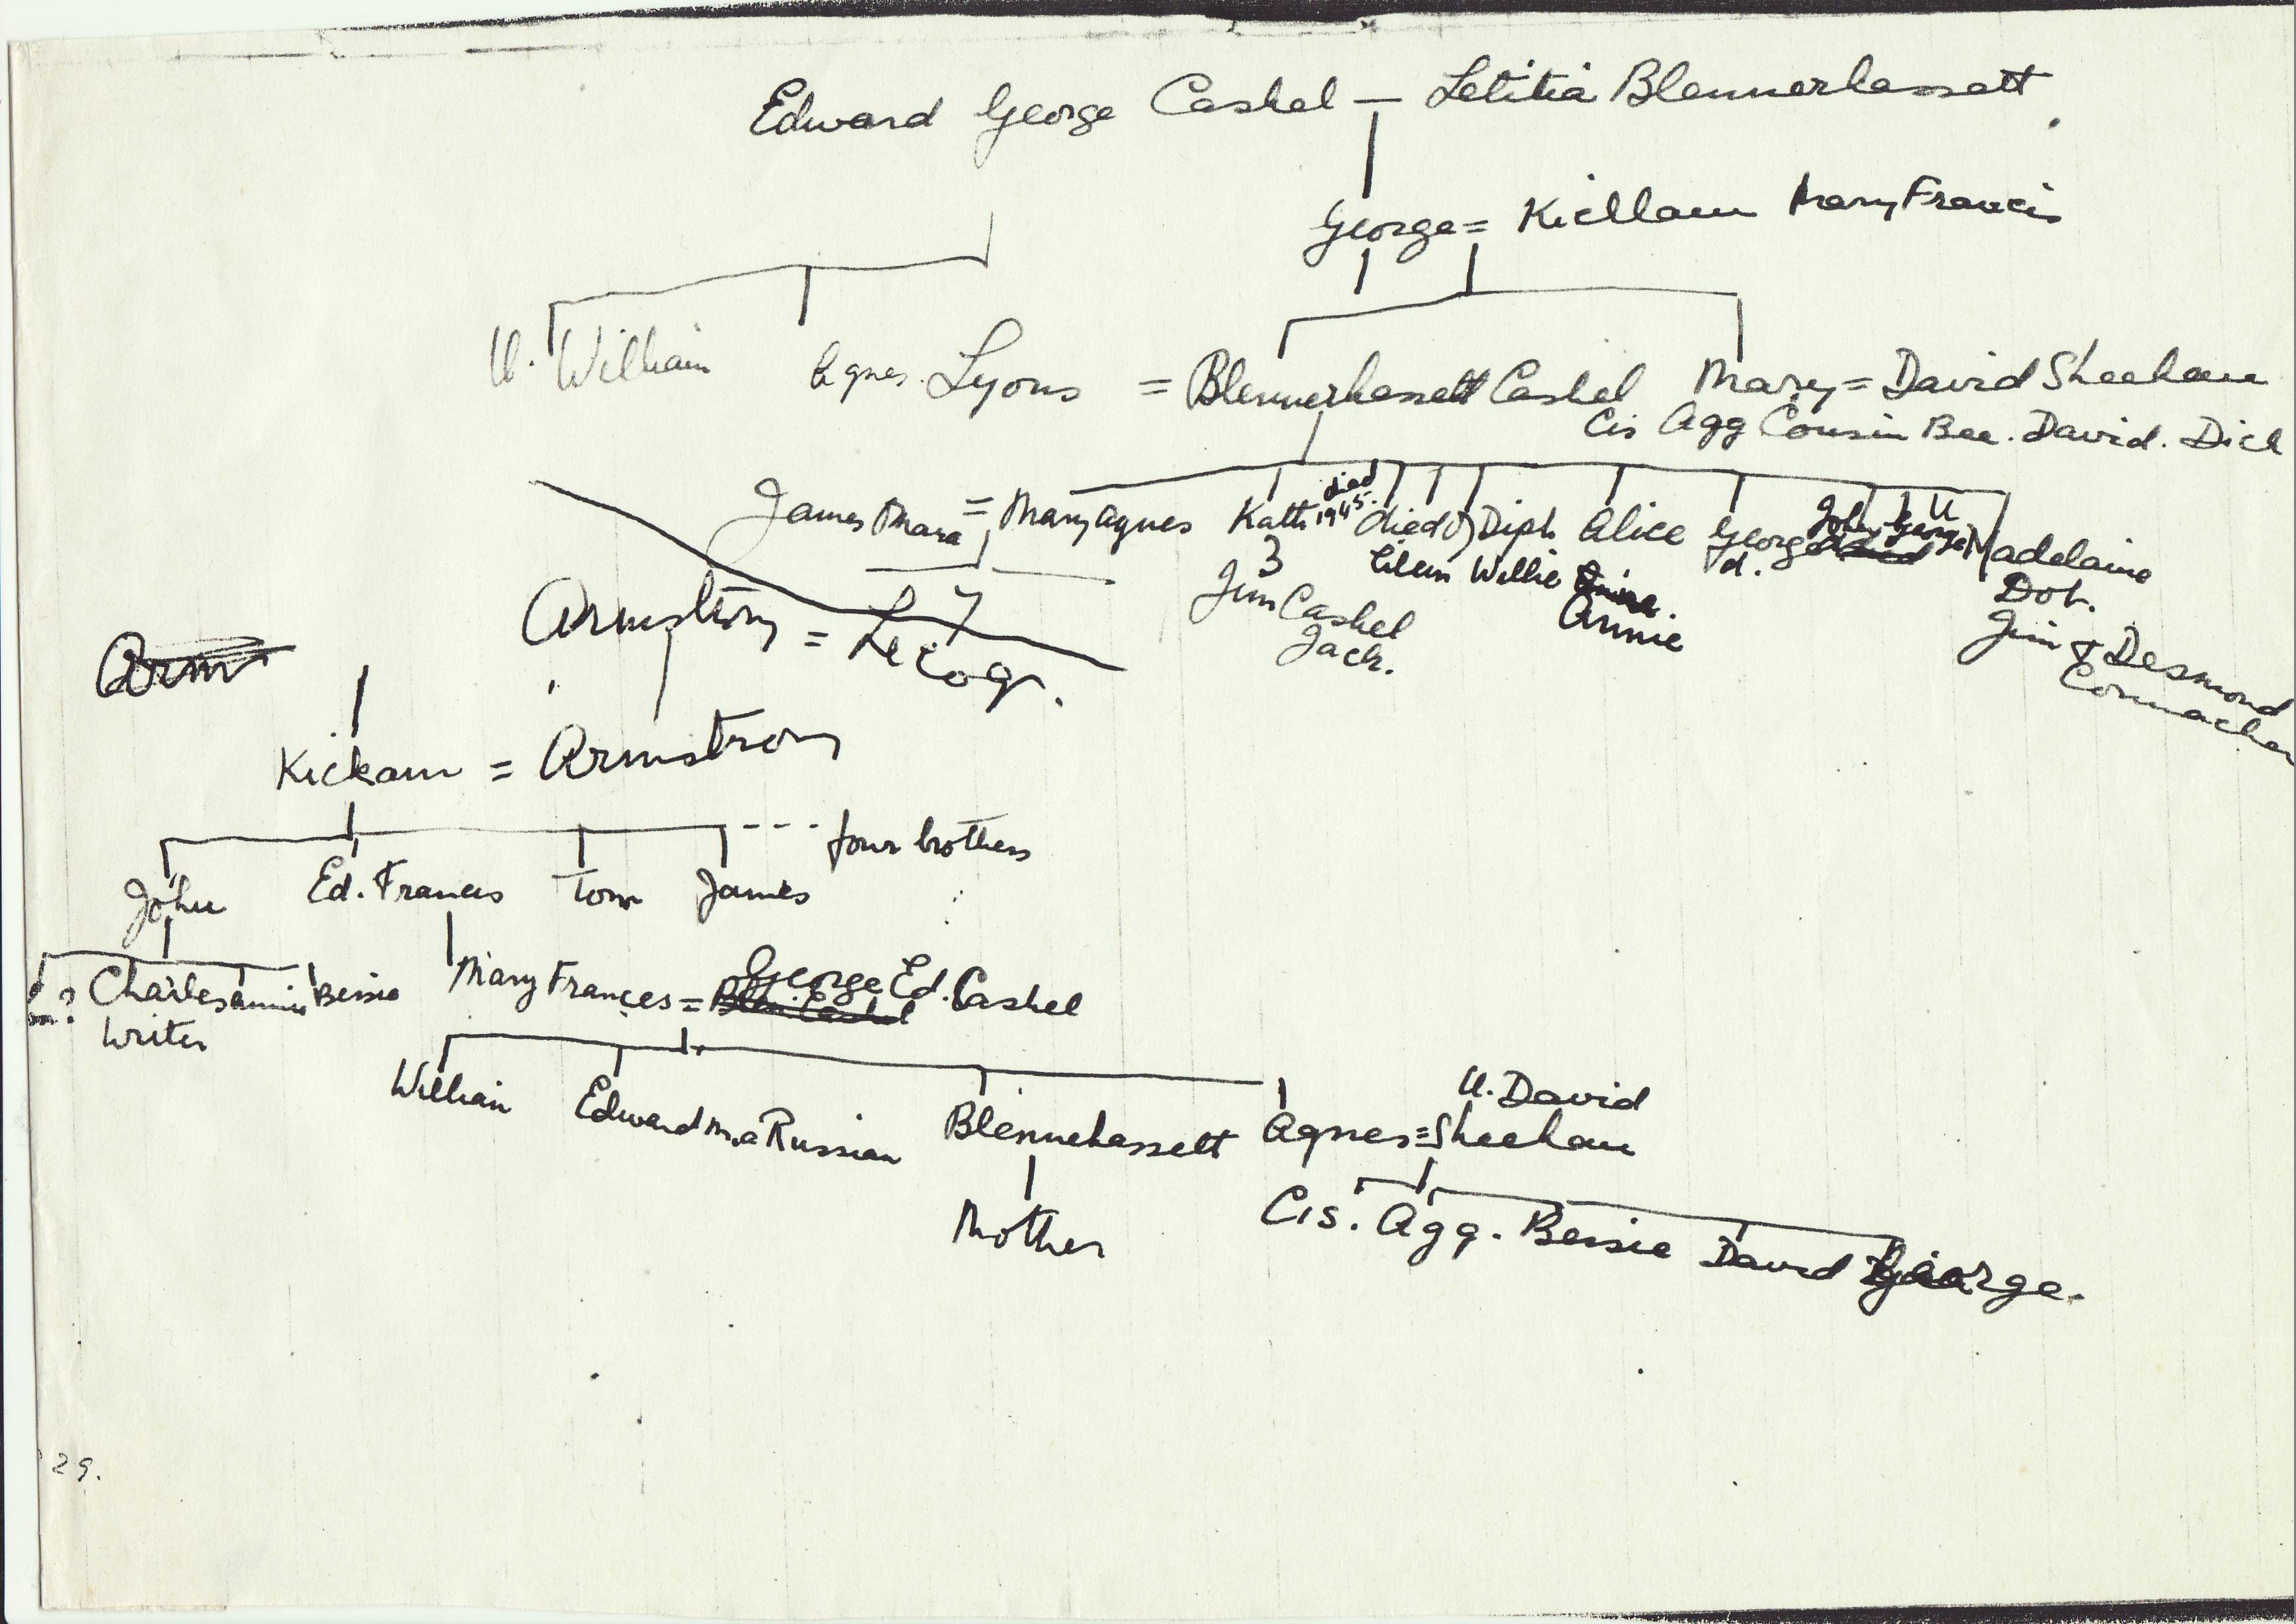 Edward George Cashel — Letitia Blennerhassett
George = Kickham Mary Francis
U. William Agnes. Lyons = Blennerhassett Cashel Mary = David Sheehan
Cis Agg Cousin Bee. David. Dick
James Mara = Mary Agnes Kath died 1945. died of Diph Alice George d. John George U Madelaine
3 Eileen Willie Annie Dot.
Jim Cashel Jack.
Jim & Desmond Cormachan
Armstrong =
Arm
Kickam = Armstrong
four brothers
John Ed. Francis Tom James
Charles Annie Bessie Mary Frances = George Ed. Cashel
Writer Blen. Cashel
William Edward m. a Russian Blennehassett Agnes = Sheehan
U. David
Mother Cis. Agg. Bessie David George.
29.